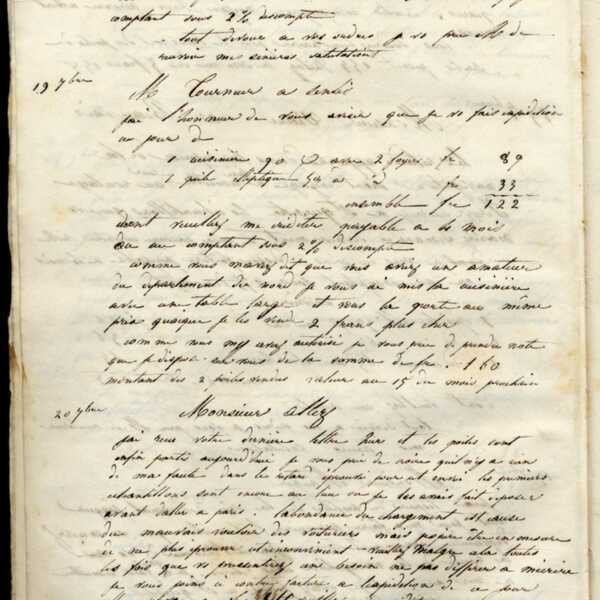 comptant sous 2% descompte
tout devoué a vos ordres je vs prie M de
mes sinceres salutations
19 7bre
M Tourneur a Senlis
jai l'honneur de vous aviser que je vs fais expedition
au jour de
1 cuisiniere 90 avec 2 foyers fr 89
1 poele Elyptique fr 33
ensemble fr 122
dont veuillez me crediter payable a 6 mois
ou au comptant sous 2% descompte
comme vous mavez dit que vous aviez un amateur
du departement du nord je vous ai mis la cuisiniere
avec une table large et vous la porte au même
prix quoique je les vende 2 francs plus cher
comme vous my avez autorisé je vous prie de prendre note
que je dispose sur vous de la somme de fr. 160
montant des 2 poeles vendus valeur au 15 du mois prochain
20 7bre
Monsieur
jai recu votre derniere lettre hier et les poeles sont
enfin partis aujourdhui je vous prie de croire quil ny a rien
de ma faute dans le retard eprouvé pour cet envoi les premiers
echantillons sont encore au lieu ou je les avais fait deposer
avant daller a paris. labondance du chargement est cause
du mauvais vouloir des voituriers mais jespere être en mesure
de ne plus eprouver veuillez malgre cela toutes
les fois que vs presenterez un besoin ne pas differer a mecrire
je vous joins a contre facture a lexpedition de ce jour